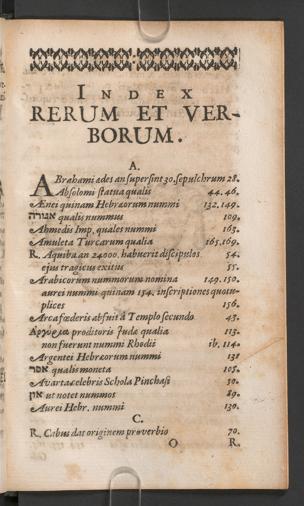 INDEX
RERUM ET VER-
BORUM.
A.
ABrahami ædes an supersint 30. sepulchrum 28.
Absolomi statua qualis 44. 46.
Ænei quinam Hebræorum nummi 132. 149.
אגורה qualis nummus 109.
Ahmedis Imp. quales nummi 163.
Amuleta Turcarum qualia 165. 169.
R. Aquiba an 24000. habuerit discipulos 54.
ejus tragicus exitus 55.
Arabicorum nummorum nomina 149. 150.
aurei nummi quinam 154. inscriptiones quotu-
plices 156.
Arca fœderis abfuit à Templo secundo 43.
Ἀργύρια proditoris Judæ qualia 113.
non fuerunt nummi Rhodii ib. 114.
Argentei Hebræorum nummi 131
אסר qualis moneta 105.
Avarta celebris Schola Pinchasi 50.
און ut notet nummos 89.
Aurei Hebr. nummi 130.
C.
R. Cahus dat originem proverbio 70.
O R.